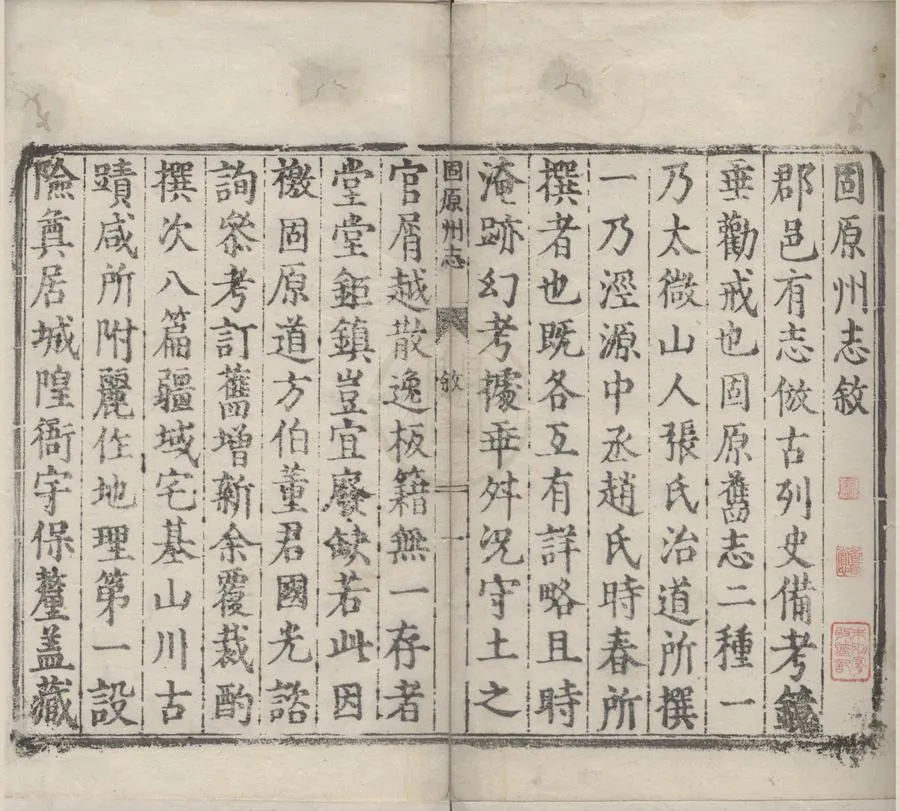 固原州志敘
郡邑有志倣古列史備考鏡
垂勸戒也固原舊志二種一
乃太微山人張氏治道所撰
一乃涇源中丞趙氏時春所
撰者也既各互有詳略且時
淹跡幻考據乖舛况守土之
固原州志
敘
一
官屑越散逸板籍無一存者
堂堂鉅鎮豈宜廢缺若此因
檄固原道方伯董君國光諮
詢叅考訂舊增新余覆裁酌
撰次八篇疆域宅基山川古
蹟咸所附麗作地理第一設
險奠居城隍衙宇保釐蓋藏